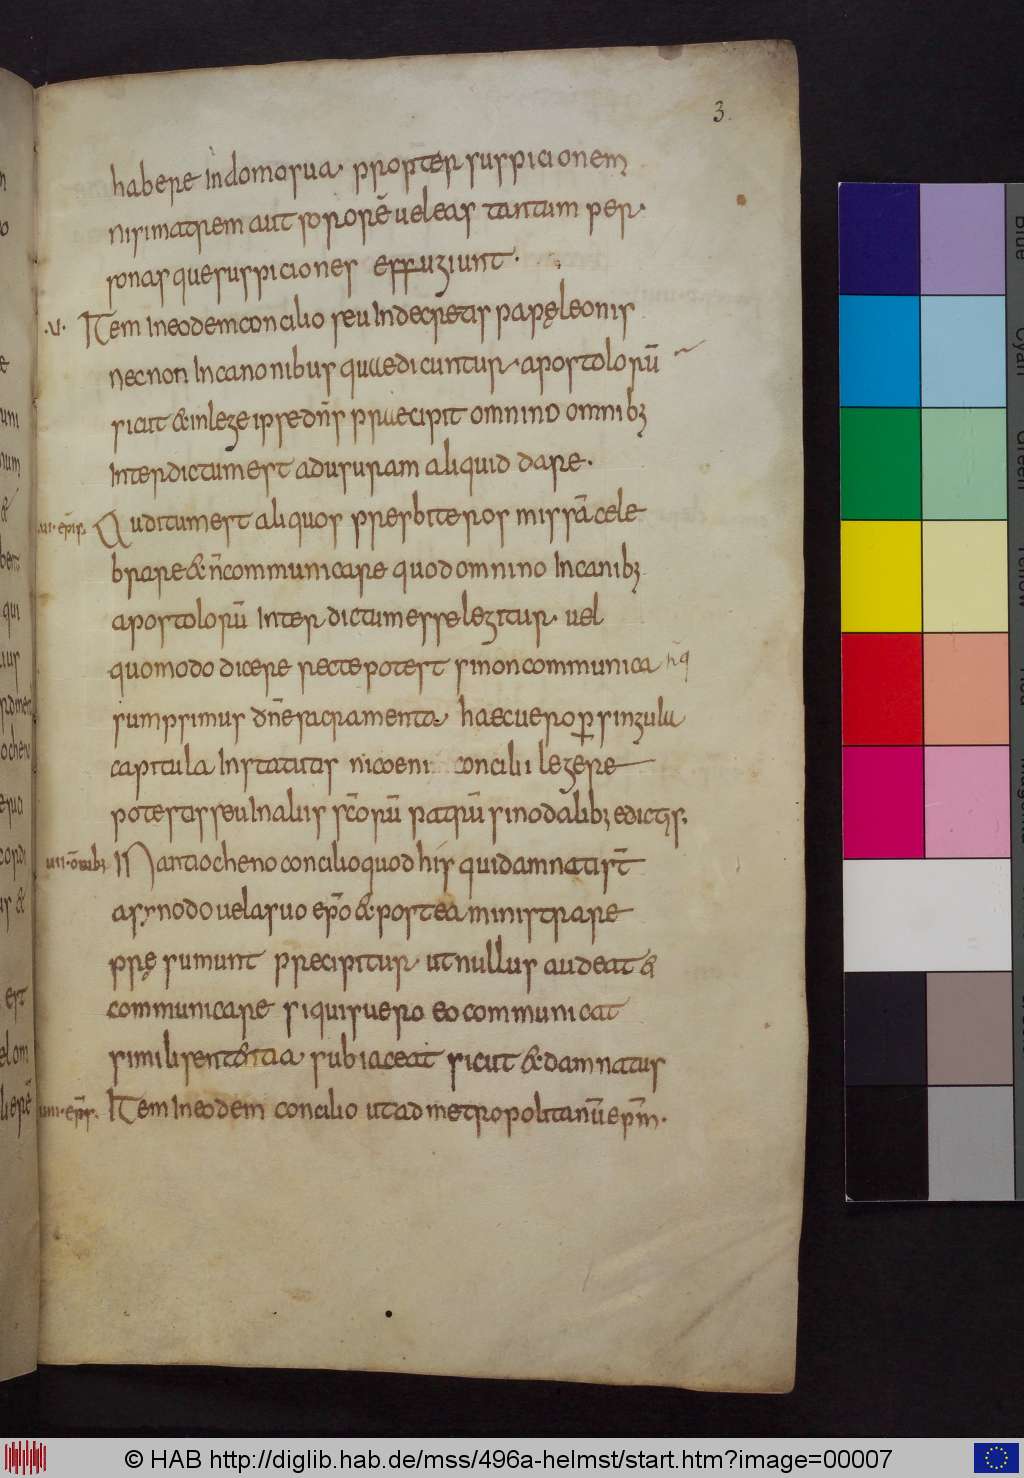 3.
habere in domo sua. propter suspicionem
nisi matrem aut sororē uel eas tantum per
sonas que suspiciones effugiunt.
.u. Item in eodem concilio seu in decretis papę leonis
nec non in canonibus quae dicuntur apostolorū
sicut & in lege ipse dn̄s praecipit omnino omnib;
interdictum est ad usuram aliquid dare.
.ui. ep̄is. Auditum est aliquos presbiteros missā cele
brare & n̄ communicare quod omnino in canib;
apostolorū interdictum esse legitur. uel
quomodo dicere recte potest si non communica
sumpsimus dn̄e sacramenta. haec uero ꝑ singula
capitula in statutis nicoeni concilii legere
potestis seu in aliis sc̄orū patrū sinodalib; edictis.
uii. om̄ib; In antiocheno concilio quod his qui damnati sr̄t
a synodo uel a suo ep̄o & postea ministrare
prę sumunt precipitur. ut nullus audeat &
communicare si quis uero eo communicat
simili sententia subiaceat sicut & damnatus
uiii. ep̄is. Item in eodem concilio ut ad metropolitanū ep̄m.
Blue
Cyan
Green
Yellow
Red
Magenta
© HAB http://diglib.hab.de/mss/496a-helmst/start.htm?image=00007